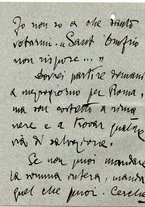 Io non so a che santo
votarmi. "Sant' Onofrio
non risponde..."
Dovrei partire domani
a mezzogiorno per Roma,
ma son costretto a rima
nere e a trovar qualche
via di salvazione.
Se non puoi mandare
la somma intera, manda
quel che puoi. Cerche